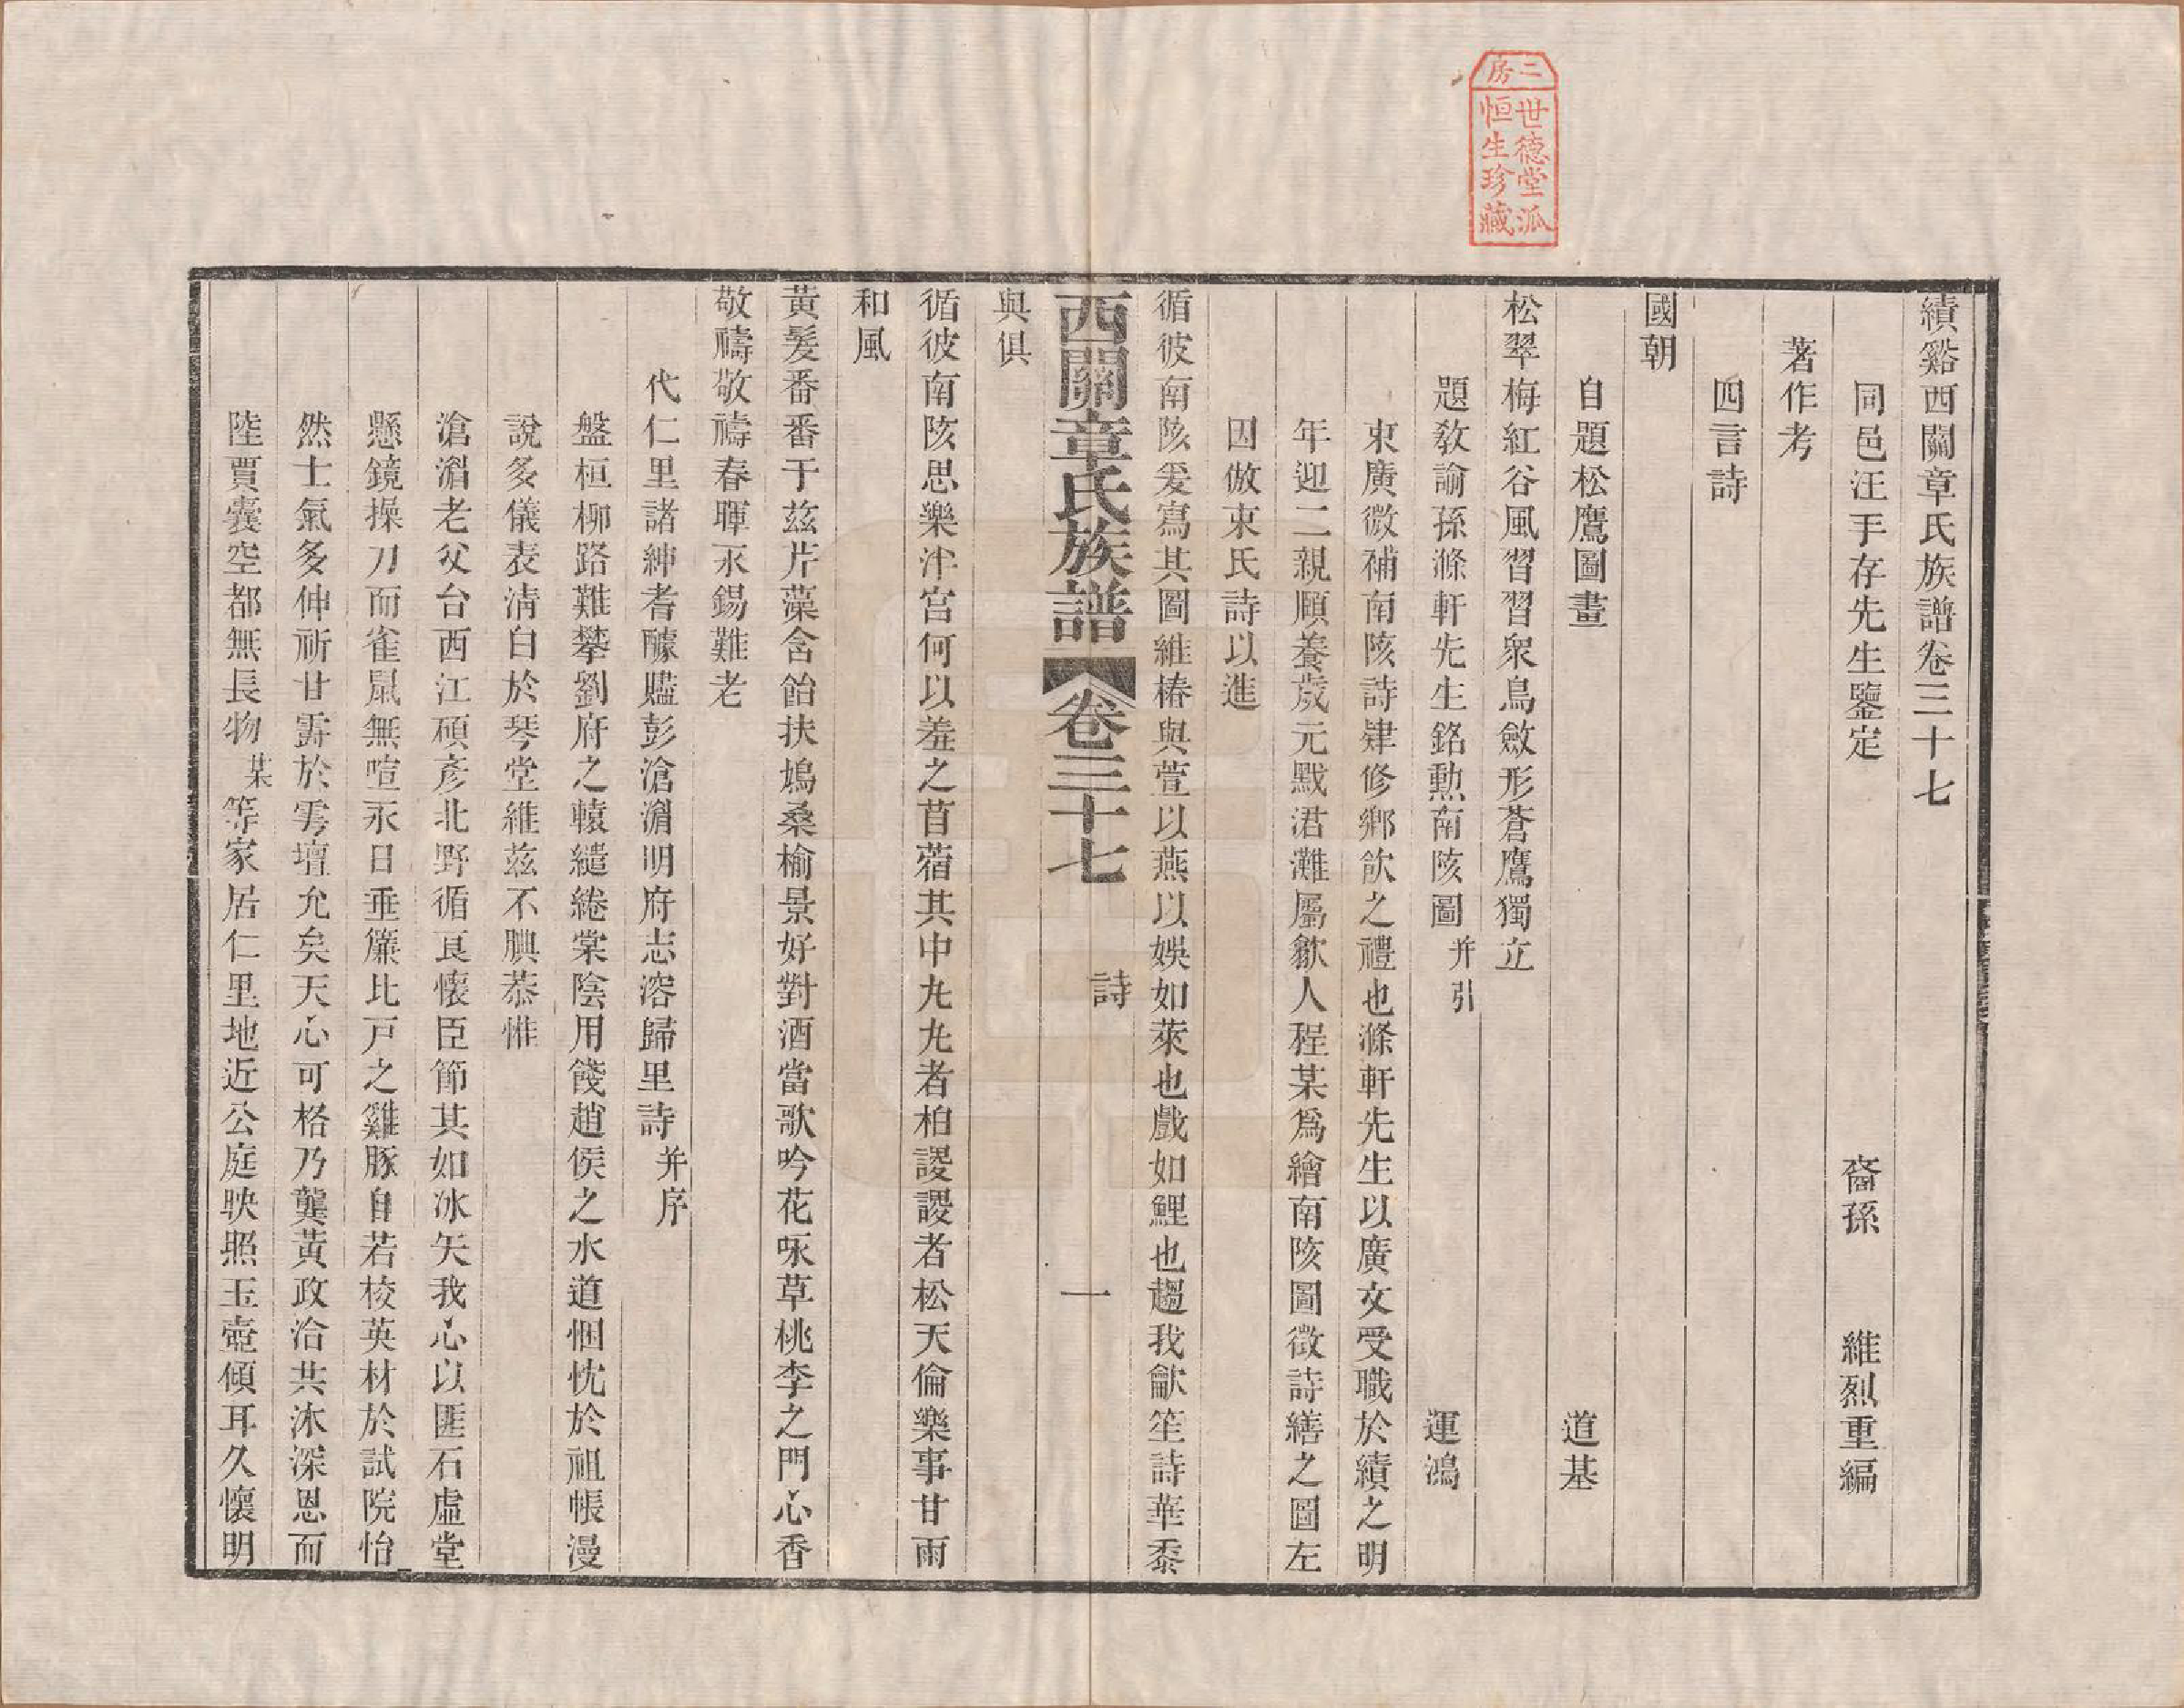 二房
世德堂派
恒生珍藏
績谿西關章氏族譜卷三十七
同邑汪手存先生鑒定　裔孫　維烈重編
著作考
四言詩
國朝
自題松鷹圖畫　道基
松翠梅紅谷風習習衆鳥斂形蒼鷹獨立
題敎諭孫滌軒先生銘勲南陔圖并引　運鴻
束廣微補南陔詩肄修鄕飮之禮也滌軒先生以廣文受職於績之明
年迎二親頤養歲元黓涒灘屬歙人程某爲繪南陔圖徵詩繕之圖左
因倣束氏詩以進
循彼南陔爰寫其圖維椿與萱以燕以娛如萊也戲如鯉也趨我龡笙詩華黍
西關章氏族譜　卷三十七　詩　一
與俱
循彼南陔思樂泮宫何以羞之苜蓿其中丸丸者柏謖謖者松天倫樂事甘雨
和風
黃髮番番于兹芹藻含飴扶鳩桑榆景好對酒當歌吟花咏草桃李之門心香
敬禱敬禱春暉永錫難老
代仁里諸紳耆醵贐彭滄湄明府志溶歸里詩并序
盤桓柳路難攀劉府之轅繾綣棠陰用餞趙侯之水道悃忱於祖帳漫
說多儀表淸白於琴堂維兹不腆恭惟
滄湄老父台西江碩彥北野循良懷臣節其如冰矢我心以匪石虛堂
懸鏡操刀而雀鼠無喧永日垂簾比戸之雞豚自若校英材於試院怡
然士氣多伸祈甘霈於雩壇允矣天心可格乃龔黃政洽共沐深恩而
陸賈囊空都無長物某等家居仁里地近公庭映照玉壺傾耳久懷明